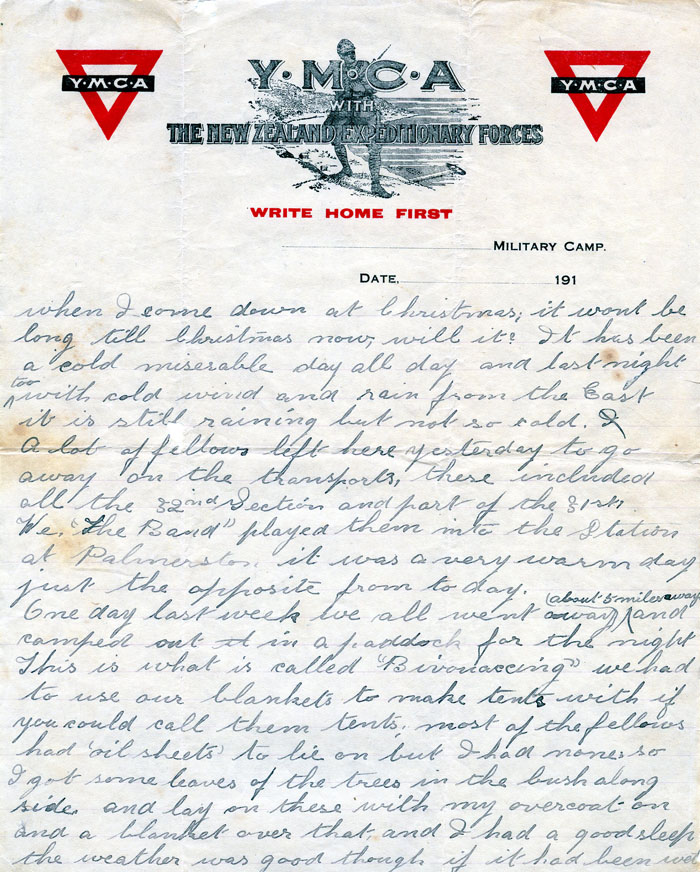 Y·M·C·A
Y·M·C·A
Y·M·C·A
WITH
THE NEW ZEALAND EXPEDITIONARY FORCES
WRITE HOME FIRST
MILITARY CAMP.
DATE, 191
when I come down at Christmas; it wont be
long till Christmas now, will it? It has been
a cold miserable day all day and last night
too
^ with cold wind and rain from the East
it is still raining but not so cold. I
A lot of fellows left here yesterday to go
away on the transports, these included
all the 32nd Section and part of the 31st.
We, "The Band" played them into the Station
at Palmerston it was a very warm day
just the opposite from to day.
(about 5 miles away
One day last week we all went away ^ and
camped out in a paddock for the night
This is what is called "Bivonaccing" we had
to use our blankets to make tents with if
you could call them tents, most of the fellows
had 'oil sheets' to lie on but I had none, so
I got some leaves of the trees in the bush along
side, and lay on these with my overcoat on
and a blanket over that and I had a good sleep
the weather was good though if it had been wet